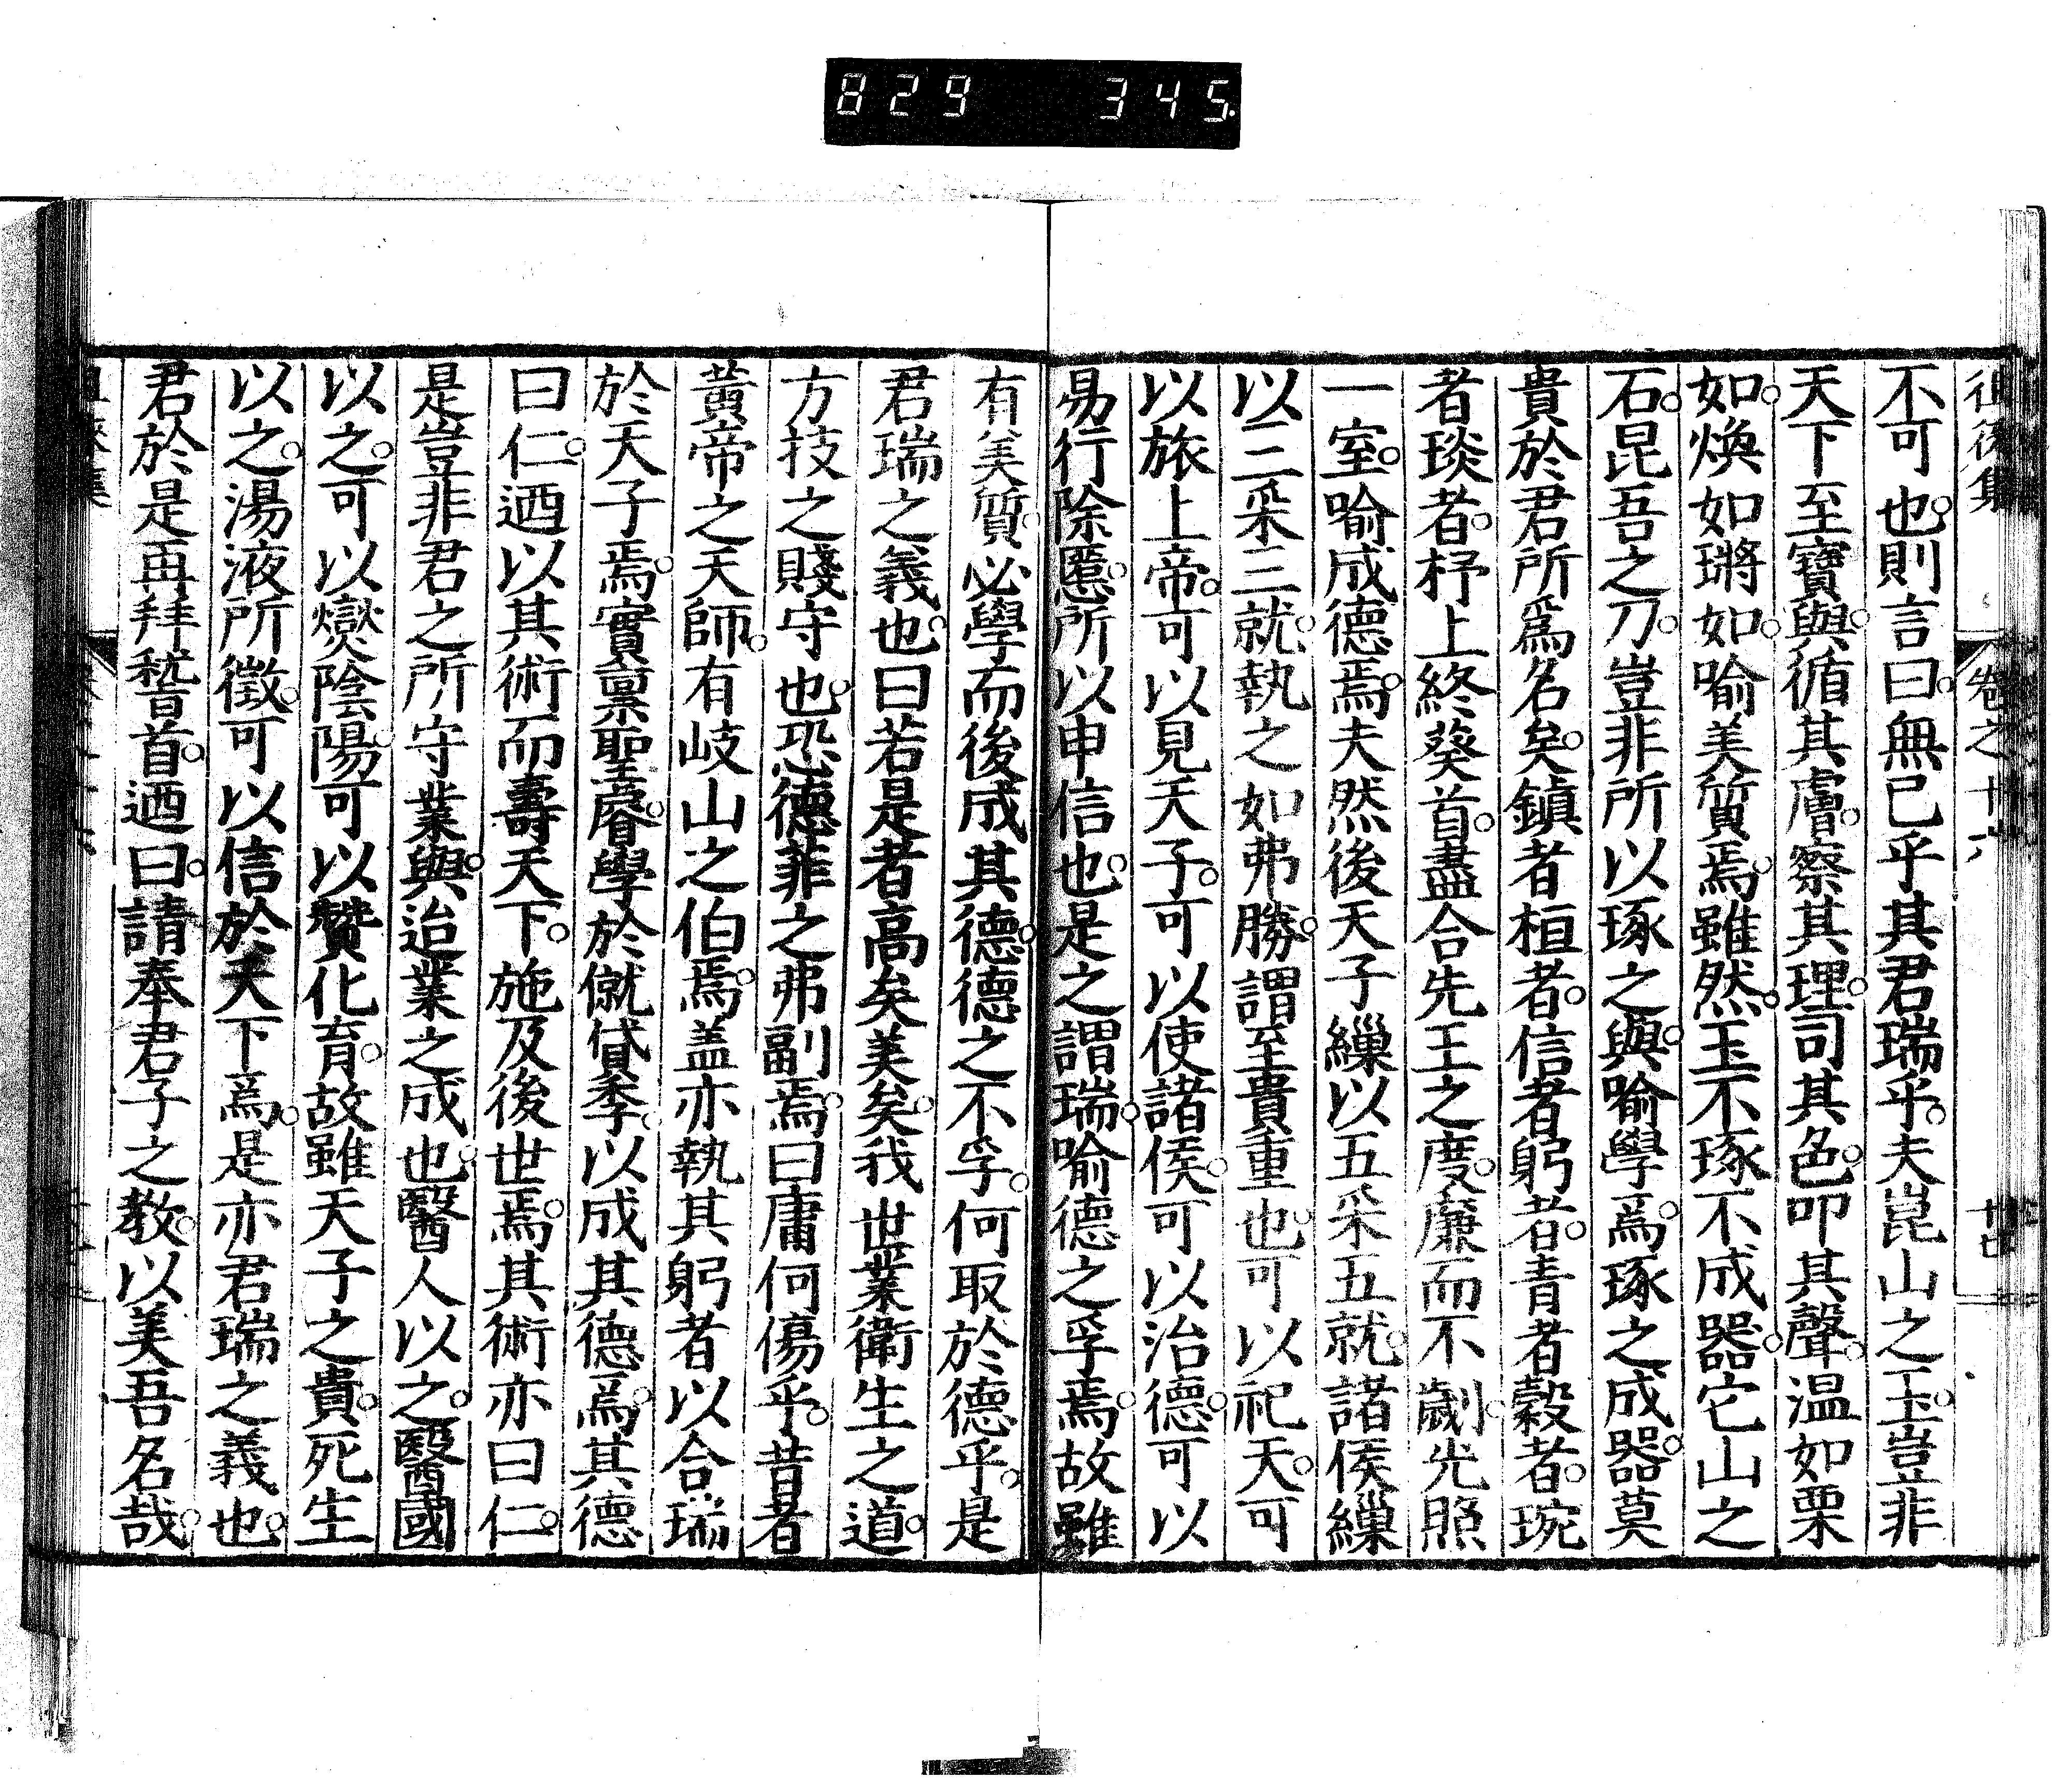 829 345
徂徠集 卷之十八 廿七
不可也則言曰無已乎其君瑞乎夫崑山之玉豈非
天下至寶與循其膚察其理司其色叩其聲温如栗
如煥如瓅如喻美質焉雖然玉不琢不成器它山之
石昆吾之刀豈非所以琢之與喻學焉琢之成器莫
貴於君所爲名矣鎮者桓者信者躬者青者穀者琬
者琰者杼上終葵首盡合先王之度廉而不劌光照
一室喻成德焉夫然後天子繅以五采五就諸侯繅
以三采三就執之如弗勝謂至貴重也可以祀天可
以旅上帝可以見天子可以使諸侯可以治德可以
易行除慝所以申信也是之謂瑞喻德之孚焉故雖
有美質必學而後成其德德之不孚何取於德乎是
君瑞之義也曰若是者高矣美矣我世業衛生之道
方技之賤守也恐德菲之弗副焉曰庸何傷乎昔者
黃帝之天師有岐山之伯焉盖亦執其躬者以合瑞
於天子焉實稟聖睿學於僦貸季以成其德焉其德
曰仁迺以其術而壽天下施及後世焉其術亦曰仁
是豈非君之所守業與迨業之成也醫人以之醫國
以之可以燮陰陽可以贊化育故雖天子之貴死生
以之湯液所徵可以信於天下焉是亦君瑞之義也
君於是再拜稽首迺曰請奉君子之教以美吾名哉